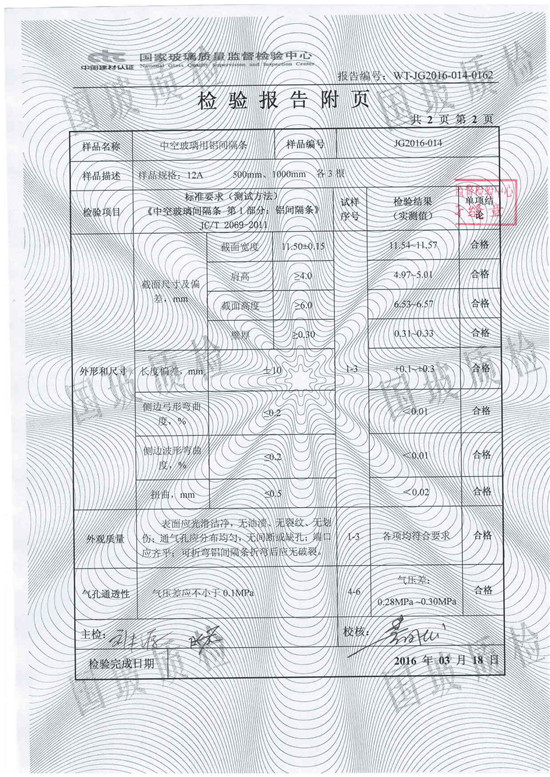 中国建材认证
国家玻璃质量监督检验中心
National Glass Quality Supervision and Inspection Center
报告编号：WT-JG2016-014-0162
检验报告附页
共 2 页 第 2 页
样品名称 中空玻璃用铝间隔条 样品编号 JG2016-014
样品描述 样品规格：12A 500mm、1000mm 各3根
检验项目 标准要求（测试方法）
《中空玻璃间隔条 第1部分：铝间隔条》
JC/T 2069-2011
试样
序号
检验结果
（实测值）
单项结
论
外形和尺寸
截面尺寸及偏
差，mm
截面宽度 11.50±0.15 1-3 11.54~11.57 合格
肩高 ≥4.0 4.97~5.01 合格
截面高度 ≥6.0 6.53~6.57 合格
壁厚 ≥0.30 0.31~0.33 合格
长度偏差，mm ±10 +0.1~+0.3 合格
侧边弓形弯曲
度，%
≤0.2 <0.01 合格
侧边波形弯曲
度，%
≤0.2 <0.01 合格
扭曲，mm ≤0.5 <0.02 合格
外观质量
表面应光滑洁净，无油渍、无裂纹、无划
伤；通气孔应分布均匀，无间断或缺孔；端口
应齐平；可折弯铝间隔条折弯后应无破裂。
1-3 各项均符合要求 合格
气孔通透性 气压差应不小于 0.1MPa 4-6 气压差：
0.28MPa~0.30MPa 合格
主检： 校核：
检验完成日期 2016 年 03 月 18 日
国玻质检
国玻质检
国玻质检
国玻质检
国玻质检
国玻质检